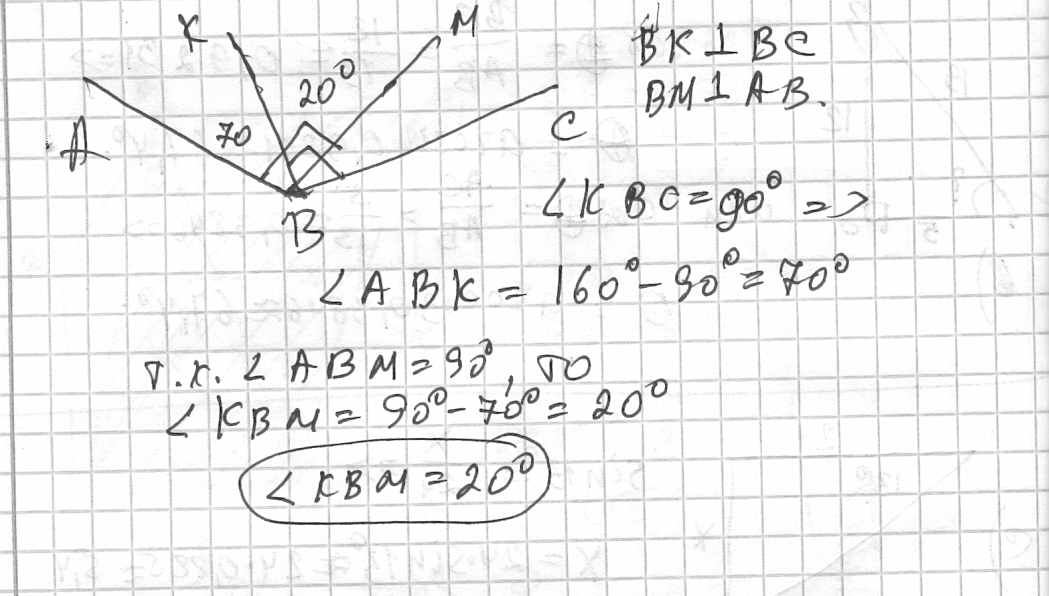 K
M
20°
70
A
C
B
BK⊥BC
BM⊥AB.
∠KBC=90° =>
∠ABK = 160°-90°=70°
т.к. ∠ABM=90°, то
∠KBM = 90°-70°= 20°
∠KBM=20°